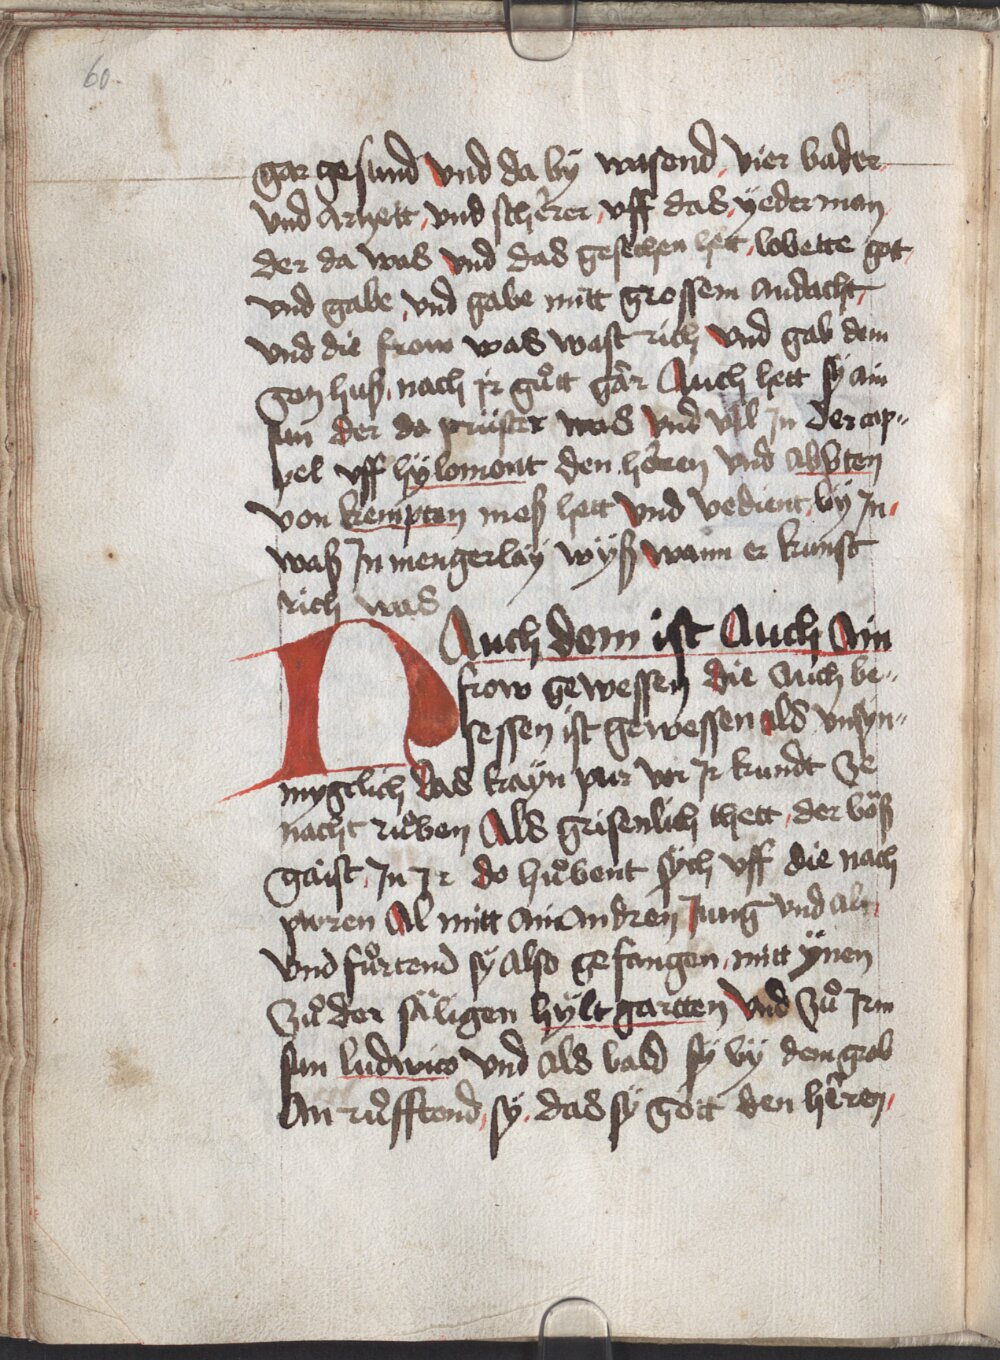 60
gar gesund vnd da bÿ wasend vier bader
vnd Artzett vnd scherer vff das yederman
der da was vnd das gesechen hett lobette got
vnd gabe vnd gabe mitt grossem andacht
vnd die frow was vast rich vnd gab dem
gotz huß nach ir guͦtt gar Auch hett sÿ ain
sun der da priister was vnd vil Jn der cap„
pel vff hÿlomont den heren vnd abbten
von kempten meß hett vnd vedient bÿ Jn
waß Jn mengerlaÿ wÿß wann er kunst
rich was
Nauch dem ist Auch Ain
frow gewessen die Auch be„
sessen ist gewessen als vnsyn„
nygclich das kayn pur vor Jr kundt ze
nacht ruͦben Als grisenlich thett der boͤß
gaist Jn Jr do huͦbent sych vff die nach
puren Al mitt ain andren Jung vnd alt
vnd fuͦrtend sÿ also gefangen mitt ÿnen
zuͦ der säligen hÿltgartten vnd zuͦ Jrm
sun ludwico vnd als bald sÿ bÿ dem grab
An ruͦfftend sÿ das sÿ gott den heren